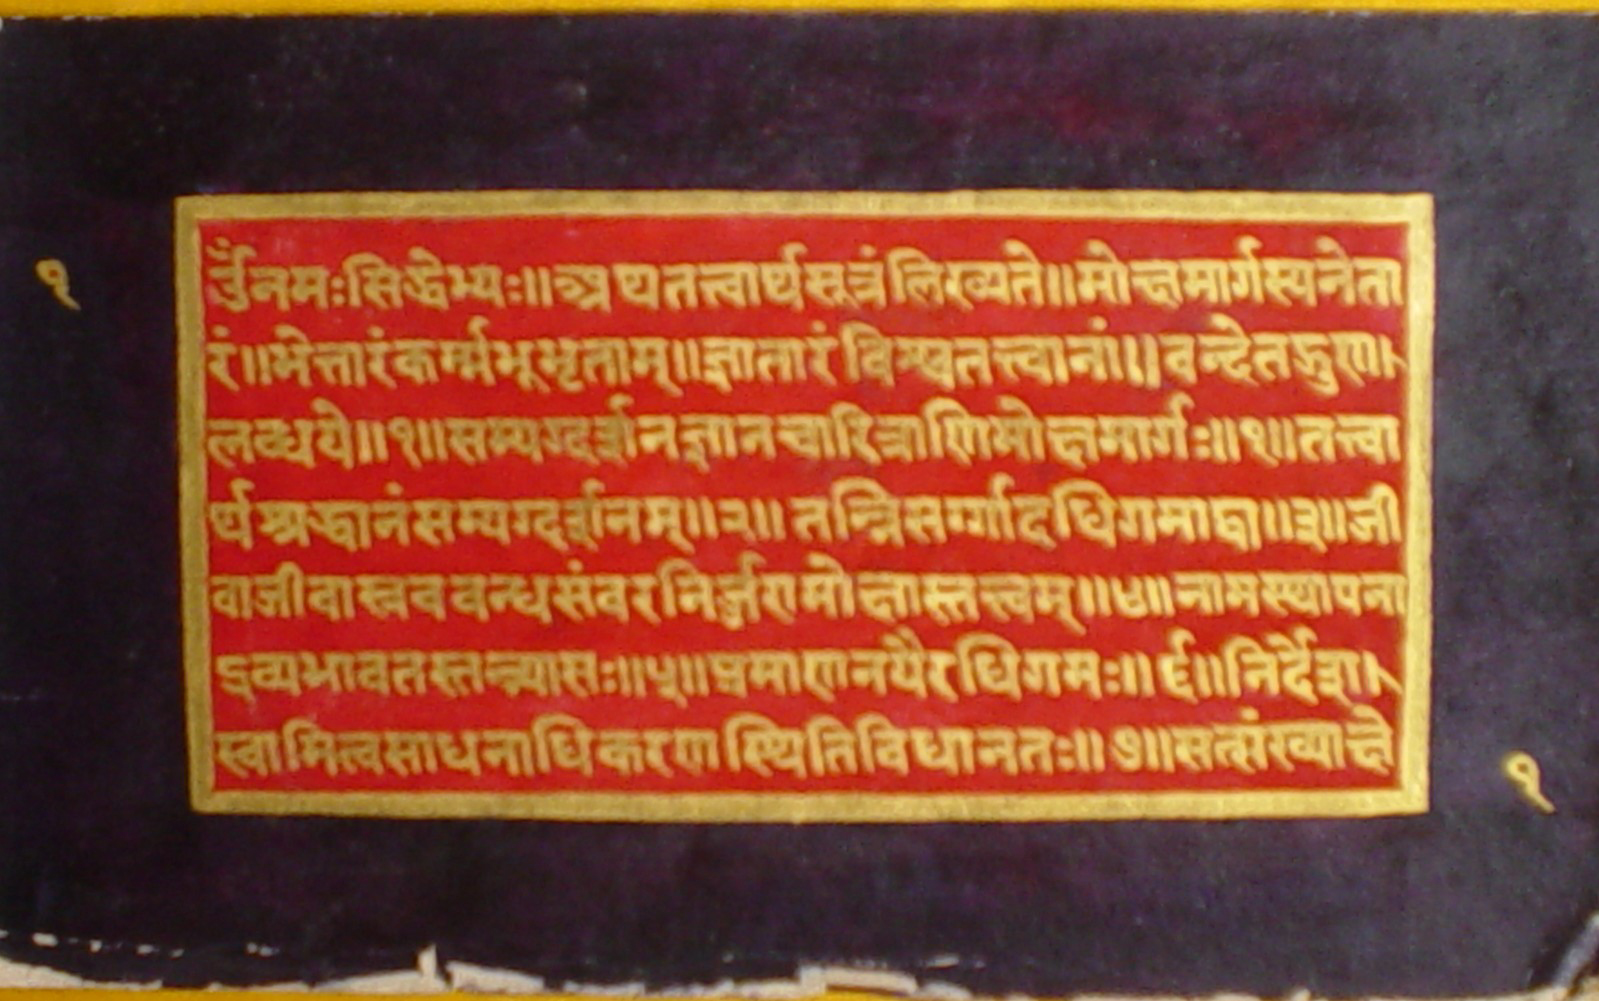 १
ॐनमःसिद्धेभ्यः॥अथतत्त्वार्थसूत्रंलिख्यते॥मोक्षमार्गस्यनेता
रं॥भेत्तारंकर्म्मभूभृताम्॥ज्ञातारंविश्वतत्त्वानां॥वन्देतद्गुण।
लब्धये॥१॥सम्यग्दर्शनज्ञानचारित्राणिमोक्षमार्गः॥१॥तत्त्वा
र्थश्रद्धानंसम्यग्दर्शनम्॥२॥तन्निसर्गादधिगमाद्वा॥३॥जी
वाजीवास्रवबन्धसंवरनिर्जरामोक्षास्तत्त्वम्॥४॥नामस्थापना
द्रव्यभावतस्तन्न्यासः॥५॥प्रमाणनयैरधिगमः॥६॥निर्देश।
स्वामित्वसाधनाधिकरणस्थितिविधानतः॥७॥सत्संख्याक्षे
१